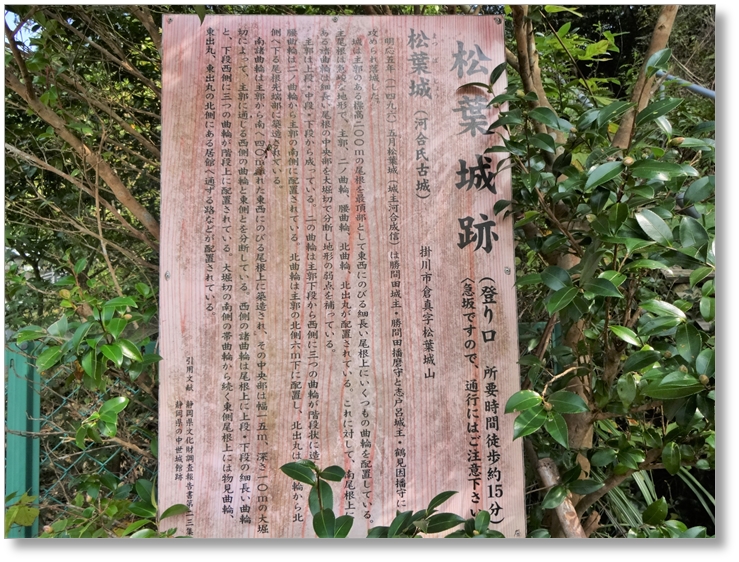 松葉城跡（登り口 所要時間徒歩約15分）
〈急坂ですので、通行にはご注意下さい
松葉城（河合氏古城）
掛川市倉真字松葉城山
明応五年（一四九六）五月松葉城（城主河合成信）は勝間田城主・勝間田播磨守と志戸呂城主・鶴見因播守に
攻められ落城した。
城は主郭のある標高二〇〇mの尾根を最頂部として東西にのびる細長い尾根上にいくつもの曲輪を配置している。
主尾根は急峻な地形で、主郭、二ノ曲輪、腰曲輪、北曲輪、北出丸が配置されている。これに対して、南尾根上に
ある諸曲輪は細長い尾根の中央部を大堀切で分断し地形の弱点を補っている。
主郭は上段・中段・下段から成っている。二の曲輪は主郭下段から西側に三つの曲輪が階段状に造
腰曲輪は二ノ曲輪から主郭の南側に配置されている。北曲輪は主郭の北側六m下に配置し、北出丸は 曲輪から北
側へ下る尾根先端部に築造されている。
南諸曲輪は主郭から南へ四〇m離れた東西にのびる尾根上に築造され、その中央部は幅一五m、深さ二〇mの大堀
切によって、主郭に通じる西側の曲輪と東側とを分断している。西側の諸曲輪は尾根上に上段・下段の細長い曲輪
と、下段西側に三つの曲輪が階段上に配置されている。大堀切の南側の帯曲輪から続く東側尾根上には物見曲輪、
東出丸、東出丸の北側にある居館へ通ずる路などが配置されている。
引用文献 静岡県文化財調査報告書第二三集
静岡県の中世城館跡